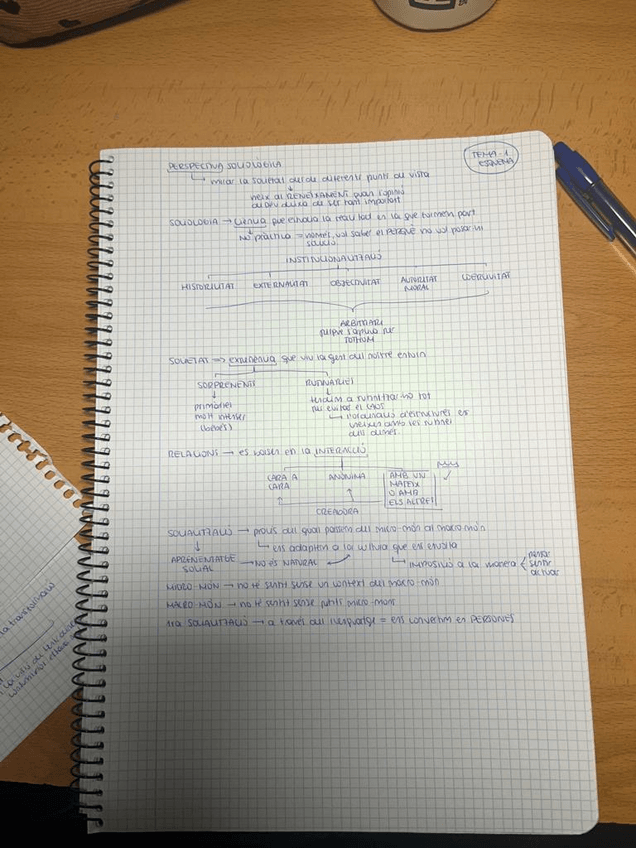 TEMA-1
ESQUEMA
PERSPECTIVA SOCIOLOGICA
mirar la societat des de diferents punts de vista
neix al RENEIXAMENT quan l'opinió
de Déu deixa de ser tant important
SOCIOLOGIA → Ciència que estudia la realitat en la que formem part
NO pràctica = només vol saber el PERQUÈ no vol posar-hi
solució
INSTITUCIONALITZACIÓ
HISTORICITAT EXTERNALITAT OBJECTIVITAT AUTORITAT COERCIVITAT
MORAL
ARBITRARI
perquè s'aplica per
TOTHOM
SOCIETAT => experiència que viu la gent del nostre entorn
SORPRENENTS RUTINÀRIES
primàries
molt intenses
(bebès)
tendim a rutinitzar-ho tot
per evitar el CAOS
les rutines
dels altres.
RELACIONS → es basen en la INTERACCIÓ
CARA A
CARA
ANÒNIMA
AMB UN
MATEIX
O AMB
ELS ALTRES
CREADORA
SOCIALITZACIÓ → procés del qual passem del micro-món al macro-món
ens adaptem a la cultura que ens envolta
APRENENTATGE
SOCIAL
→ NO és NATURAL
IMPOSICIÓ a la manera
pensar
sentir
actuar
MICRO-MÓN → no té sentit sense un context del macro-món
MACRO-MÓN → no té sentit sense petits micro-mons
1ra SOCIALITZACIÓ → a través del llenguatge = ens convertim en PERSONES